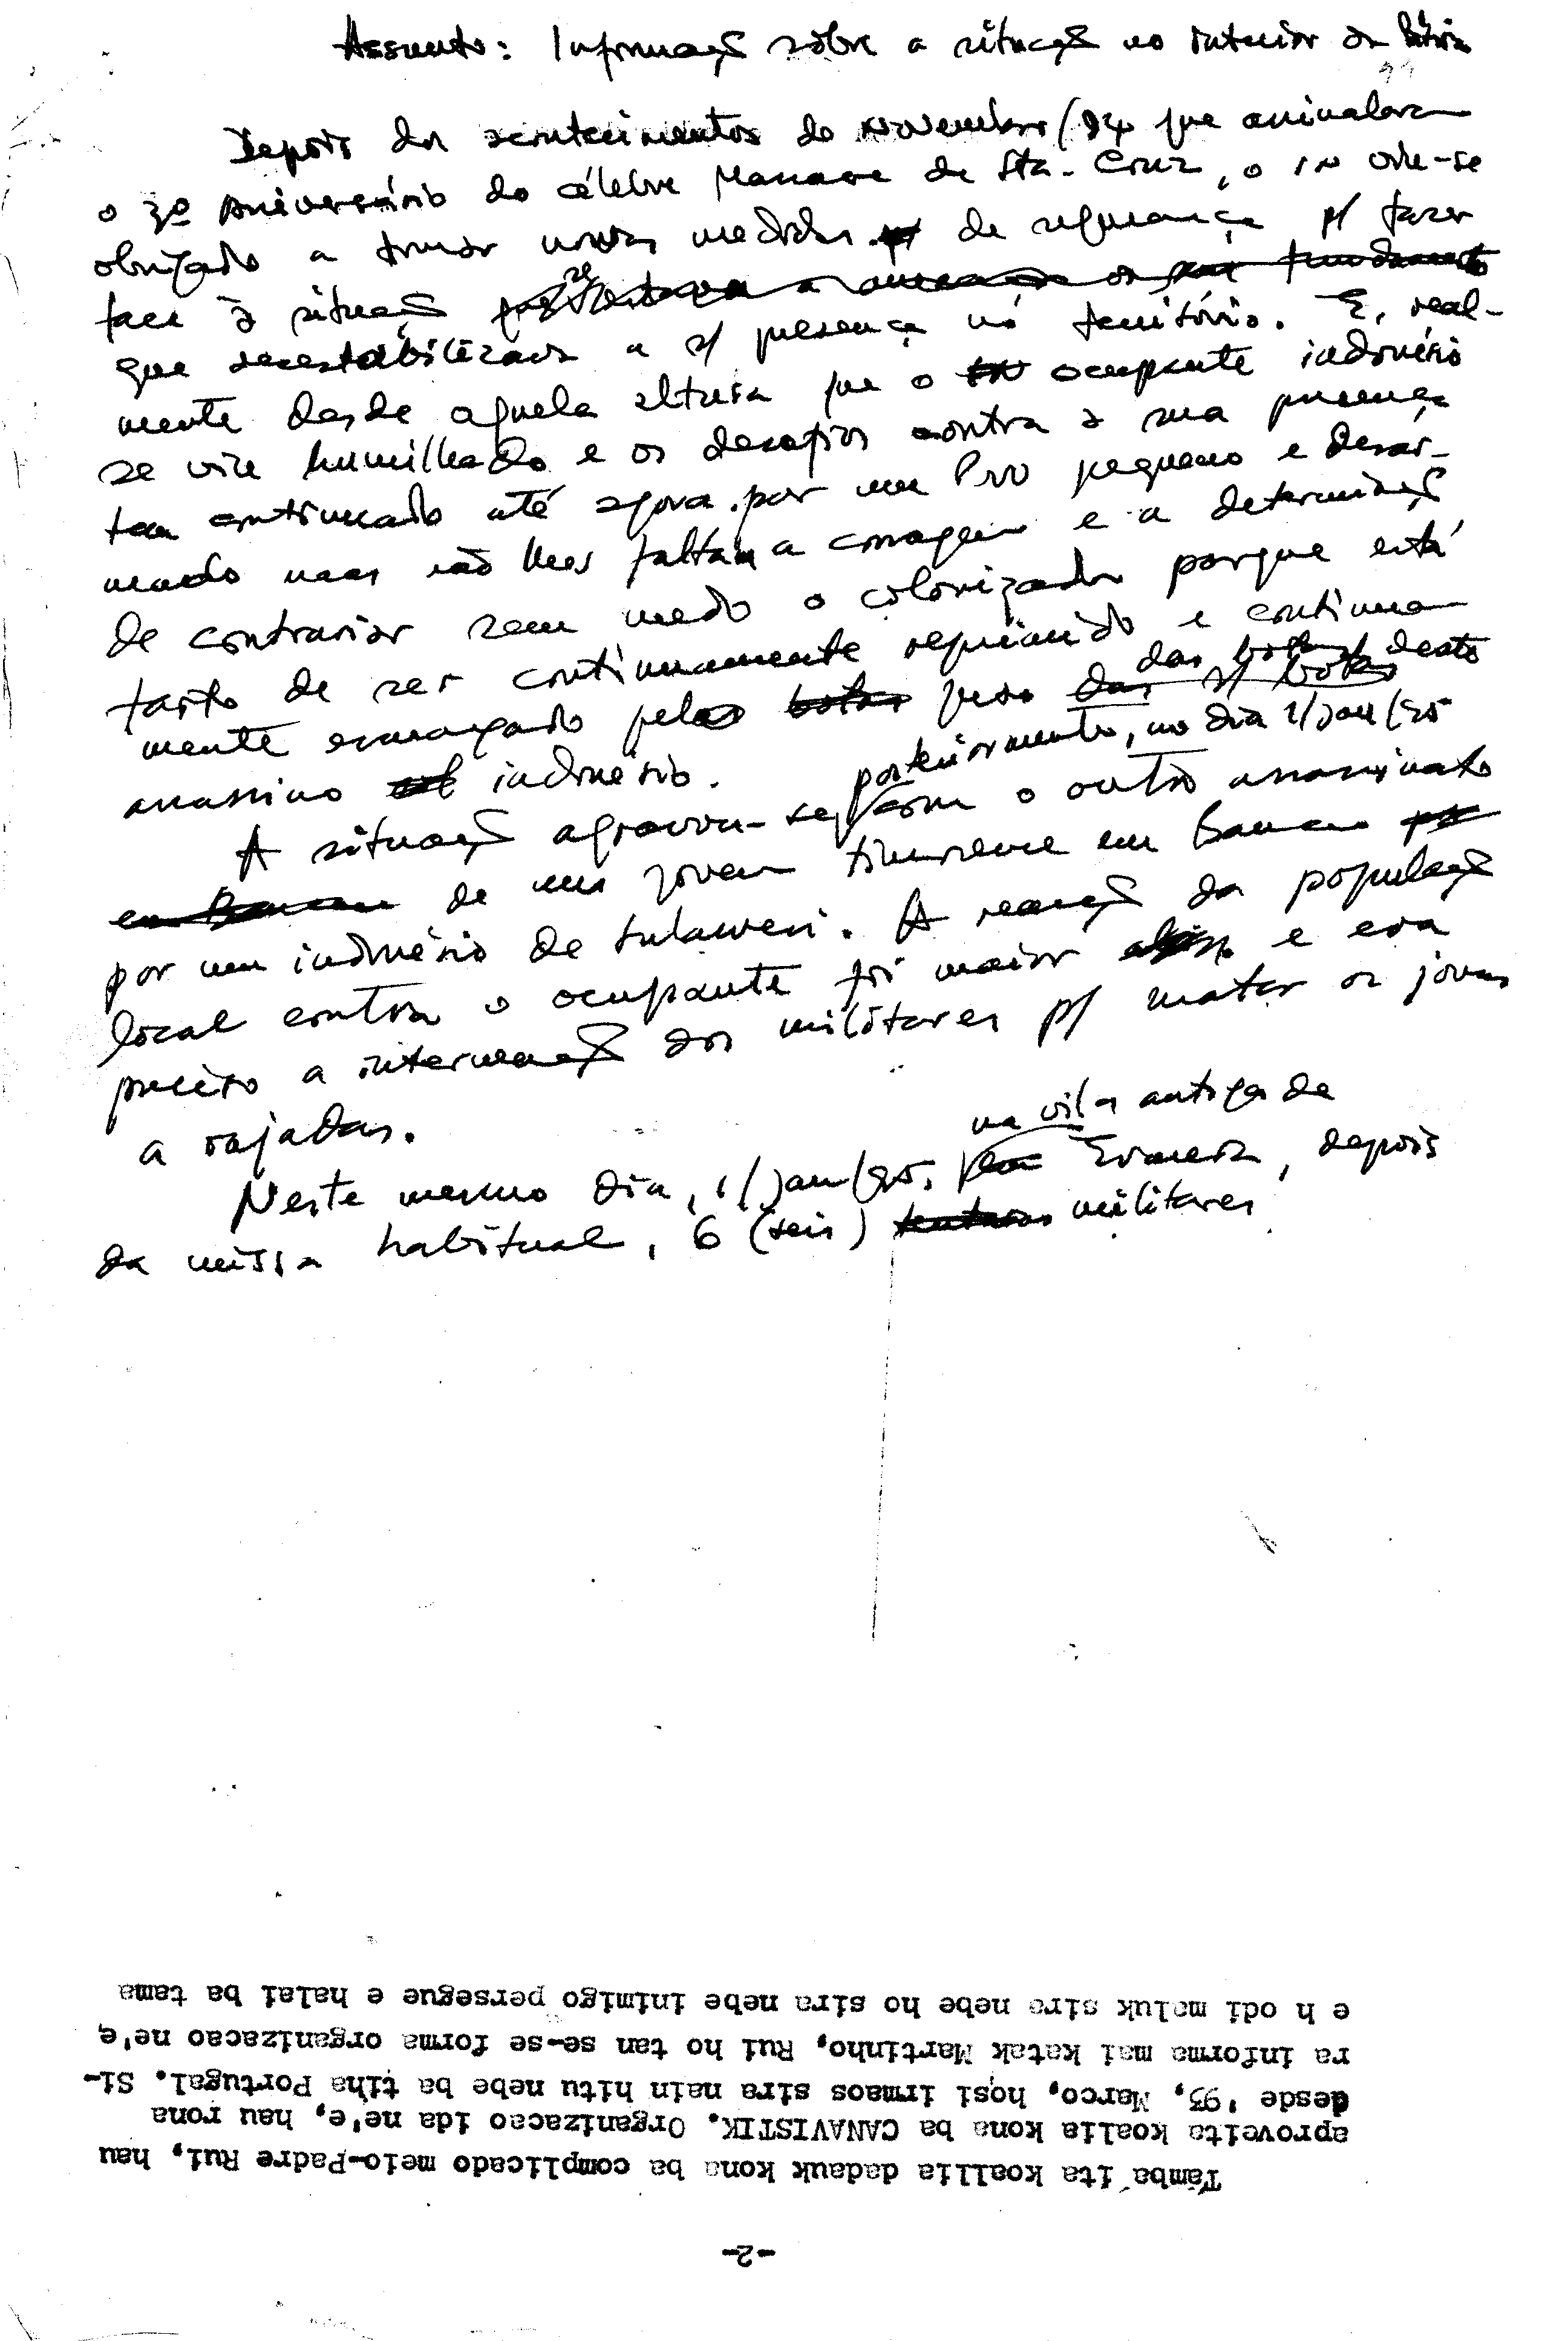 Assunto: Informação sôbre a situação no interior da Pátria
Depois dos acontecimentos do Novembro/94 que assinalava
o 3º aniversário do célebre Massacre de Sta. Cruz, o IN viu-se
obrigado a tomar novas medidas de segurança p/ fazer
face à situação
que desestabilizava a s/ presença no território. E, real-
mente desde aquela altura que o ocupante indonésio
se viu humilhado e os desafios contra a sua presença
tem continuado até agora por um Povo pequeno e desar-
mado mas não lhes faltam a coragem e a determinação
de contrariar sem medo o colonizador porque está
farto de ser continuamente reprimido e continua
mente esmagado pelo peso das botas deste
assassino indonésio.
posteriormente, no dia 1/Jan/95
A situação agravou-se, com o outro assassinato
de um jovem timorense em Baucau
por um indonésio de Sulawesi. A reacção da população
local contra o ocupante foi maior e era
preciso a intervenção dos militares p/ matar os jovens
a rajadas.
na vila antiga de
Neste mesmo dia, 1/Jan/95, Ermera, depois
da missa habitual, 6 (seis) militares
-2-
Tamba ita koallia dadauk kona ba complicado meio-Padre Rui, hau
aproveita koalia kona ba CANAVISTIK. Organizacao ida ne'e, hau rona
desde '93, Marco, hosi irmaos sira nain hitu nebe ba tiha Portugal. Si-
ra informa mai katak Martinho, Rui ho tan se-se forma organizacao ne'e,
e h odi maluk sira nebe ho sira nebe inimigo persegue e halai ba tama